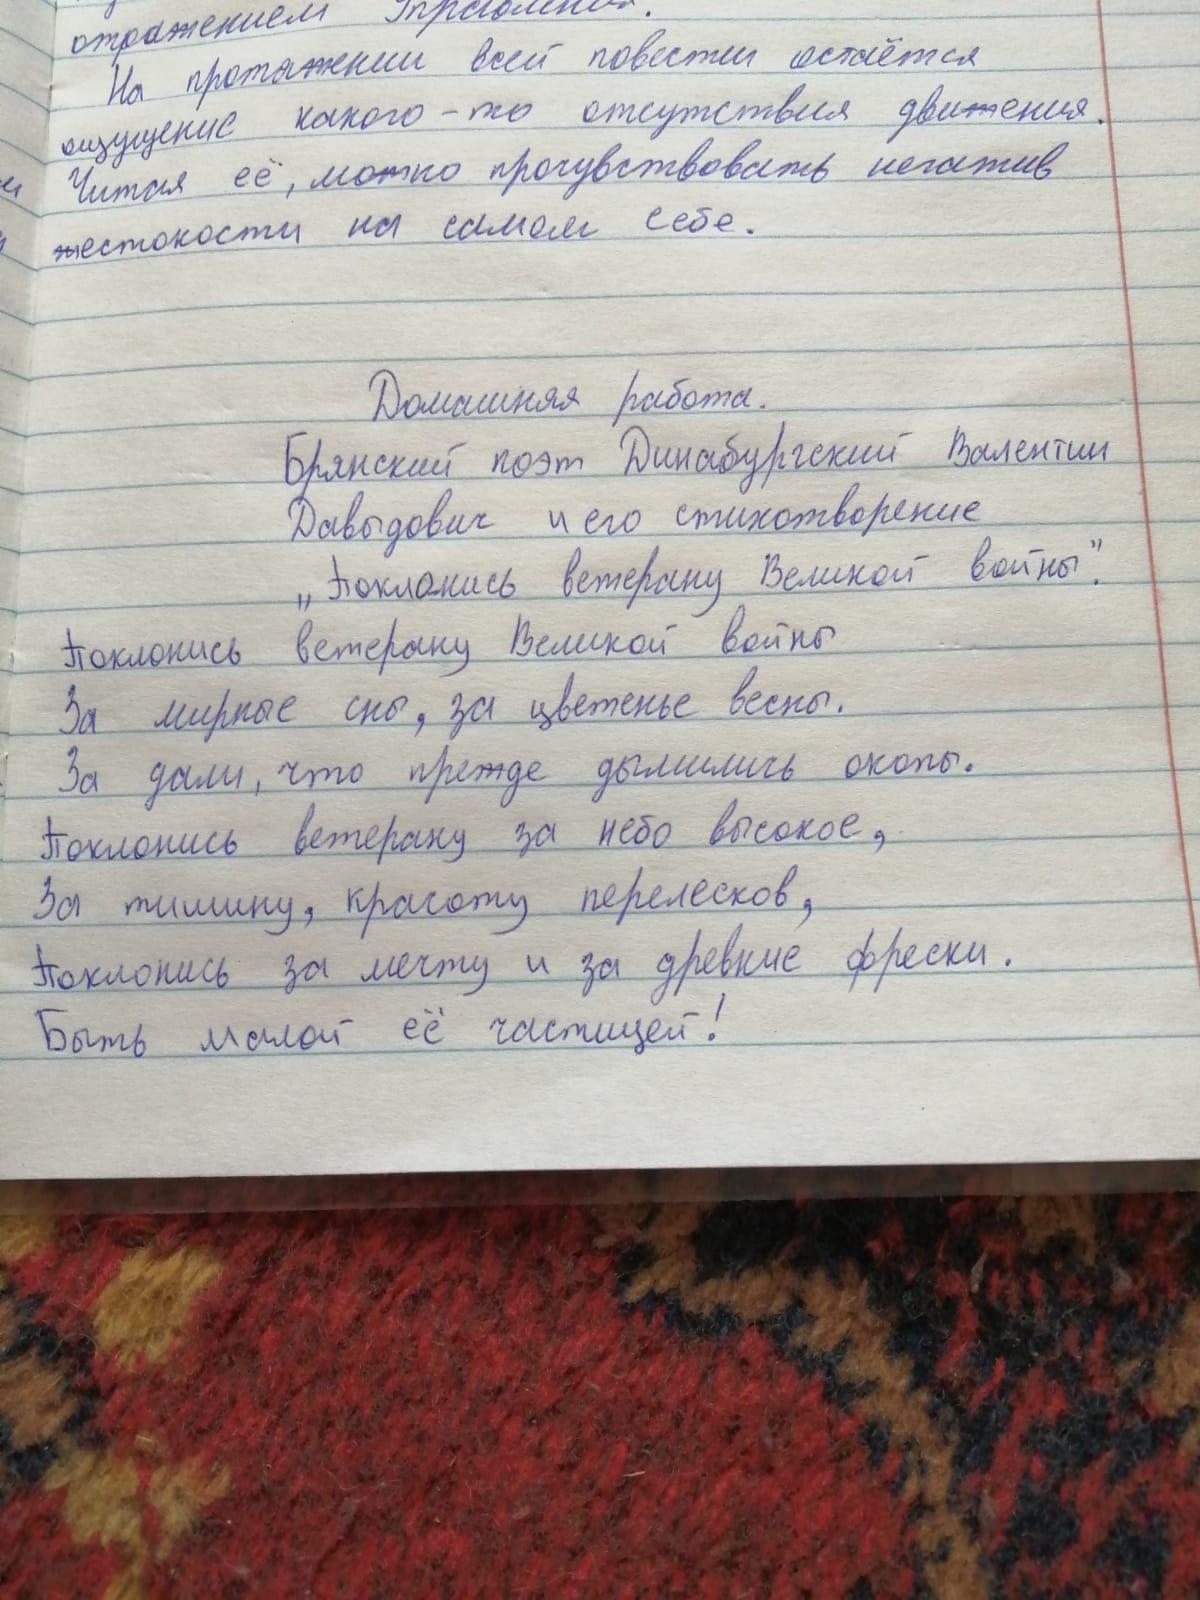 отражением
На протяжении всей повести остаётся
ощущение какого-то отсутствия движения.
Читая её, можно прочувствовать негатив
жестокости на самом себе.
Домашняя работа.
Брянский поэт Динабургский Валентин
Давыдович и его стихотворение
„Поклонись ветерану Великой войны".
Поклонись ветерану Великой войны
За мирные сны, за цветенье весны.
За дали, что прежде дымились окопы.
Поклонись ветерану за небо высокое,
За тишину, красоту перелесков,
Поклонись за мечту и за древние фрески.
Быть малой её частицей!